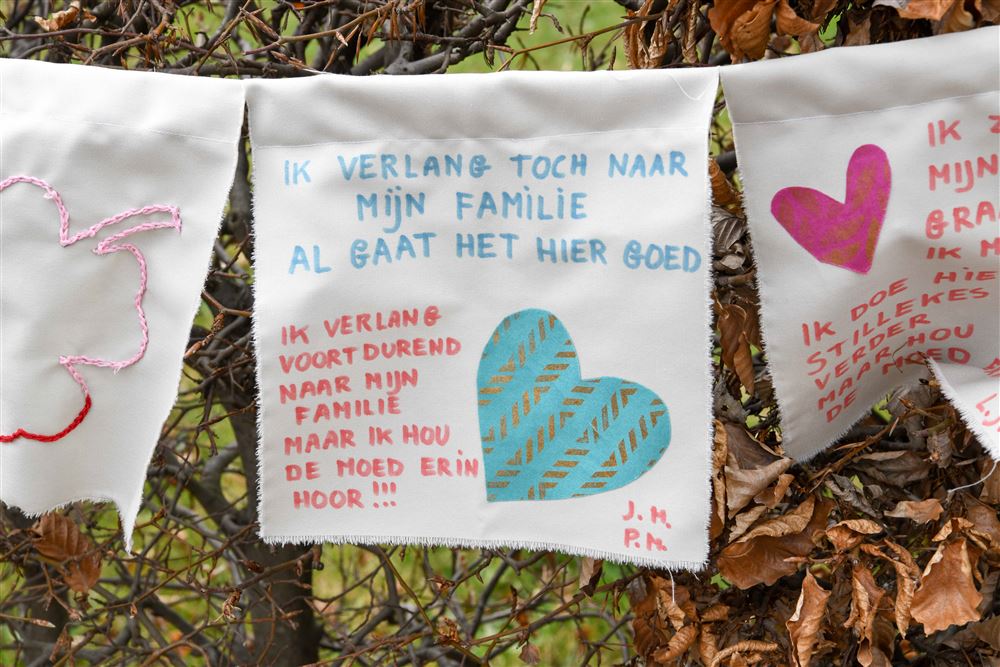 IK VERLANG TOCH NAAR
MIJN FAMILIE
AL GAAT HET HIER GOED
IK VERLANG
VOORTDUREND
NAAR MIJN
FAMILIE
MAAR IK HOU
DE MOED ERIN
HOOR!!!
J.M.
P.M.
IK
MIJN
GRA
IK M
HIE
IK DOE
STILLEKES
VERDER
MAAR HOU
DE MOED